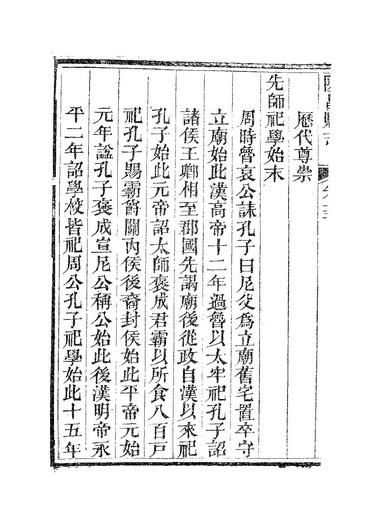 歷代尊崇
先師祀學始末
周時魯哀公誄孔子曰尼父爲立廟舊宅置卒守
立廟始此漢高帝十二年過魯以太牢祀孔子詔
諸侯王卿相至郡國先謁廟後從政自漢以來祀
孔子始此元帝詔太師褒成君霸以所食八百戸
祀孔子賜霸爵關內侯後裔封侯始此平帝元始
元年諡孔子褒成宣尼公稱公始此後漢明帝永
平二年詔學校皆祀周公孔子祀學始此十五年